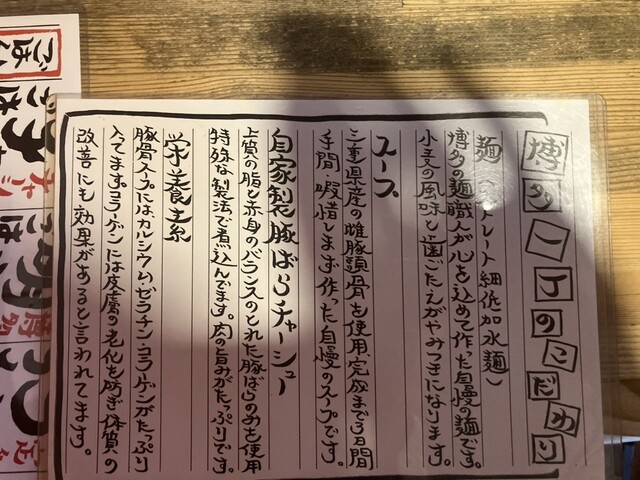 博多一丁のこだわり
麺(ストレート細低加水麺)
博多の麺職人が心を込めて作った自慢の麺です。
小麦の風味と歯ごたえがやみつきになります。
スープ
三重県産の雌豚頭骨を使用、完成まで3日間
手間・暇惜しまず作った自慢のスープです。
自家製豚ばらチャーシュー
上質の脂と赤身のバランスのとれた豚ばらのみを使用
特殊な製法で煮込んでます。肉の旨みがたっぷりです。
栄養素
豚骨スープにはカルシウム・ゼラチン・コラーゲンがたっぷり
入ってます。コラーゲンには皮膚の老化を防ぎ体質の
改善にも効果があると言われてます。
ごはん